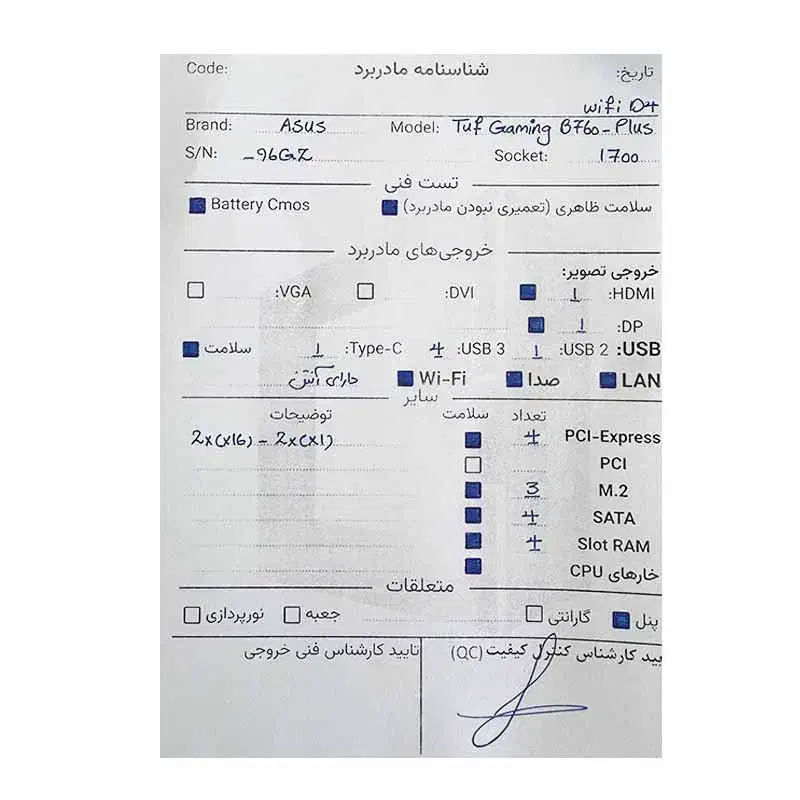 شناسنامه مادربرد
تاریخ:
Code:
wifi D4
Brand: ASUS Model: Tuf Gaming B760-Plus
S/N: -96GZ Socket: 1700
تست فنی
سلامت ظاهری (تعمیری نبودن مادربرد) Battery Cmos
خروجی‌های مادربرد
خروجی تصویر:
HDMI: 1 DVI: VGA:
DP: 1
USB: USB 2: 1 USB 3: 4 Type-C: 1 سلامت
LAN صدا Wi-Fi دارای آنتن
سایر
تعداد سلامت توضیحات
PCI-Express 4 2x(x16) - 2x(x1)
PCI
M.2 3
SATA 4
Slot RAM 4
خارهای CPU
متعلقات
پنل گارانتی جعبه نورپردازی
یید کارشناس کنترل کیفیت (QC) تایید کارشناس فنی خروجی